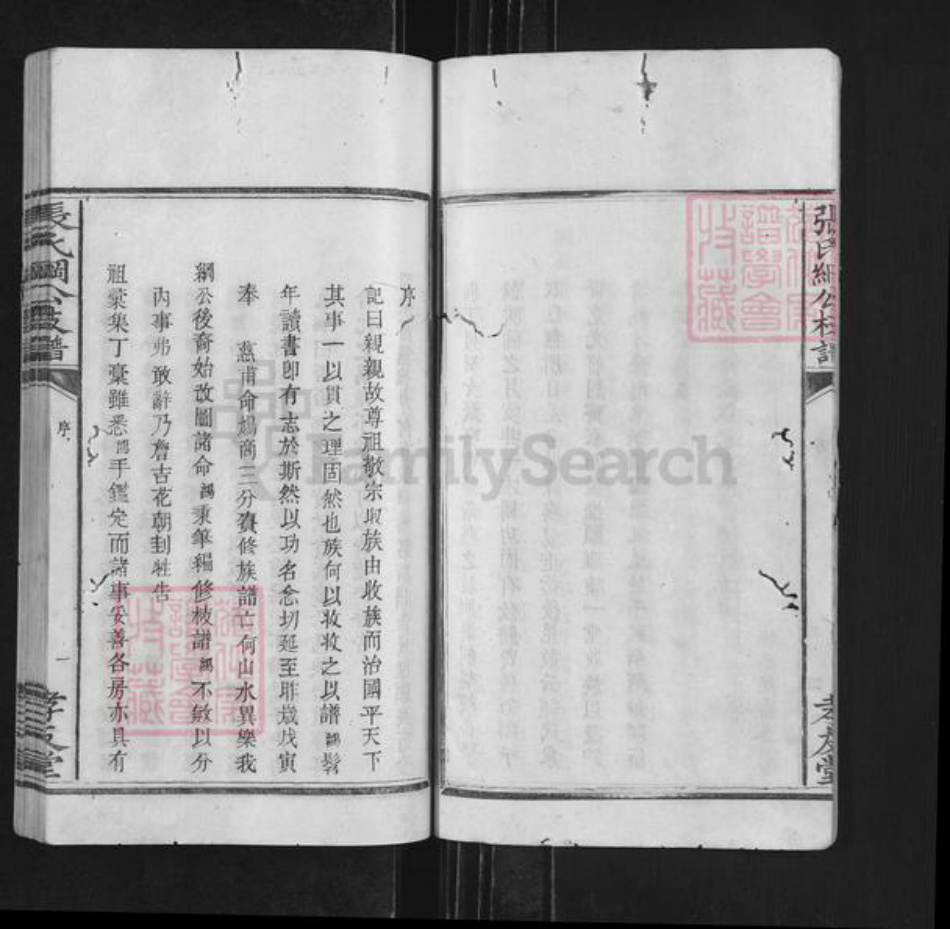 張氏綱公枝譜
孝友堂
序
記曰親親故尊祖敬宗收族由收族而治國平天下
其事一以貫之理固然也族何以收收之以譜鵾髫
年讀書卽有志於斯然以功名念切延至昨歲戊寅
奉 燕甫命鵾商三分賚修族譜亡何山水異樂我
綱公後裔始改圖諸命鵾秉筆編修枝譜鵾不敏以分
內事弗敢辭乃詹吉花朝刲牲告
祖彙集丁稾雖悉鵾手鑑定而諸事妥善各房亦具有
張氏綱公枝譜
序
一
孝友堂
FamilySearch